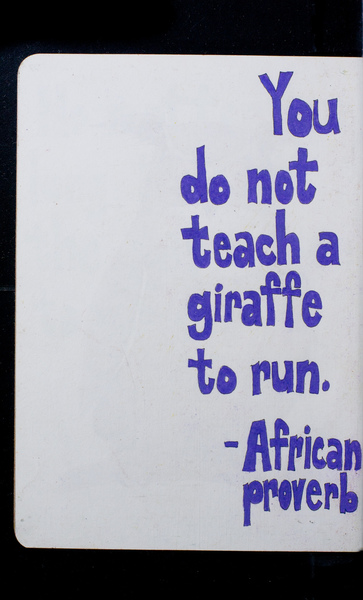 You
do not
teach a
giraffe
to run.
-African
proverb